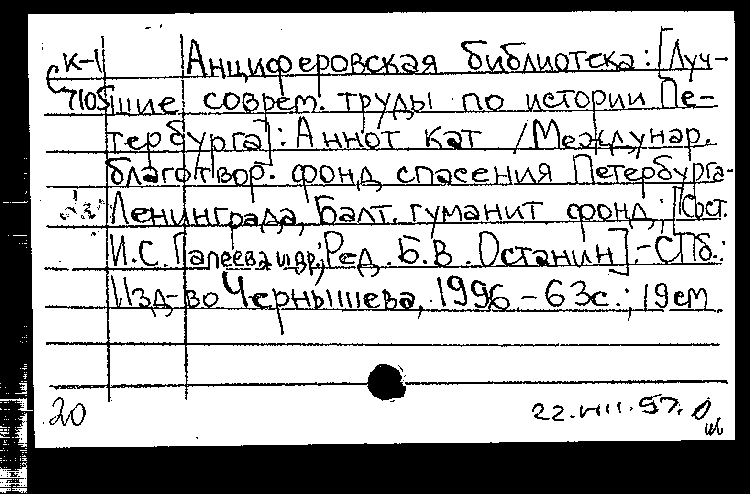 К-1 Анциферовская библиотека: [Луч-
С 7105 шие соврем. труды по истории Пе-
тербурга]: Аннот. кат / Междунар.
благотвор. фонд спасения Петербурга-
Ленинграда, Балт. гуманит фонд; [Сост.
И.С. и др.; Ред. Б.В. Останин]. - СПб.:
Изд-во Чернышева, 1996 - 63с.; 19см
20 22.VIII.97.